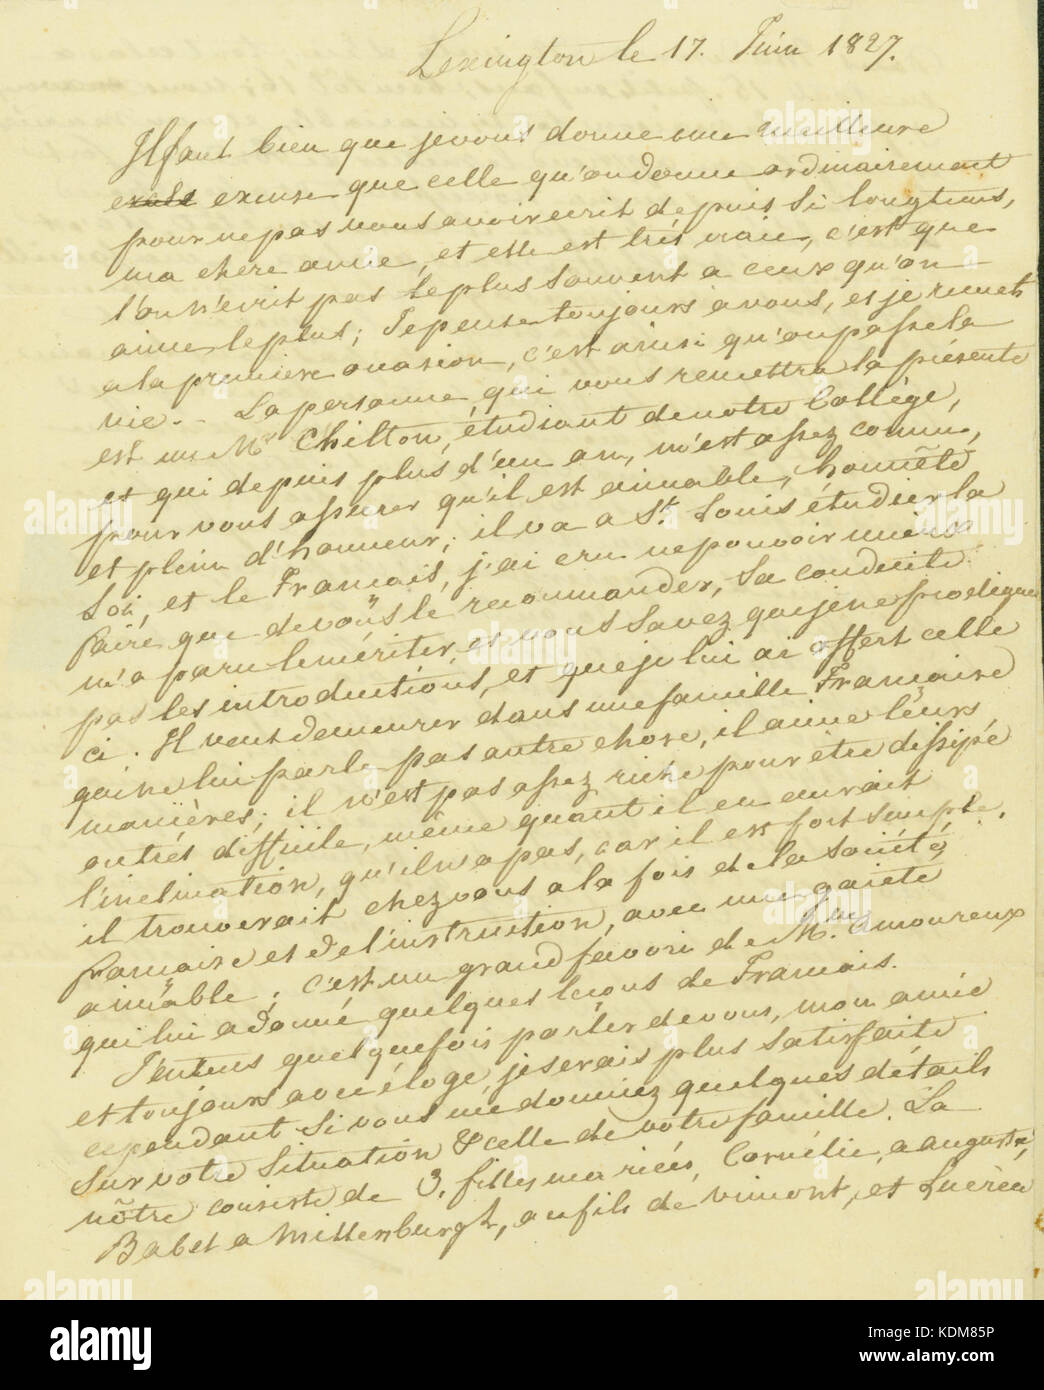 Lexington le 17. Juin 1827.
Il faut bien que je vous donne une meilleure
excuse que celle qu'on donne ordinairement
pour ne pas vous avoir ecrit depuis si longtems,
ma chere amie, et elle est très vraie, c'est que
l'on n'écrit pas le plus souvent a ceux qu'on
aime le plus; Je pense toujours a vous, et je remets
a la premiere occasion, c'est ainsi qu'on passe la
vie. - La personne qui vous remettra la présente
est un Mr Chilton, étudiant de notre Collège,
et qui depuis plus d'un an, m'est assez connu,
pour vous assurer qu'il est aimable, honnête
et plein d'honneur; il va a St. Louis étudier la
Loi, et le Francais, j'ai cru ne pouvoir mieux
faire que de vous le recommander, Sa conduite
m'a paru le mériter, et vous savez que je ne prodigue
pas les introductions, et que je lui ai offert celle
ci. Il veut demeurer dans une famille Francaise
qui ne lui parle pas autre chose, il aime leurs
manières; il n'est pas assez riche pour être dissipé
ou très difficile, même quant il en aurait
l'inclination, qu'il n'a pas, car il est fort simple.
il trouverait chez vous a la fois et de la Société
francaise et de l'instruction, avec une gaieté
aimable; c'est un grand favori de Mme Amoureux
qui lui a donné quelques lecons de Francais.
J'entens quelquefois parler de vous, mon amie
et toujours avec éloge, je serais plus satisfaite
cependant si vous me donniez quelques détails
sur votre situation & celle de votre famille. La
nôtre consiste de 3. filles mariées, Cornélie, a Auguste,
Babet a Mittenburgh, au fils de Vimont, et Lucrèce
alamy
alamy
Image ID: KDM85P
www.alamy.com